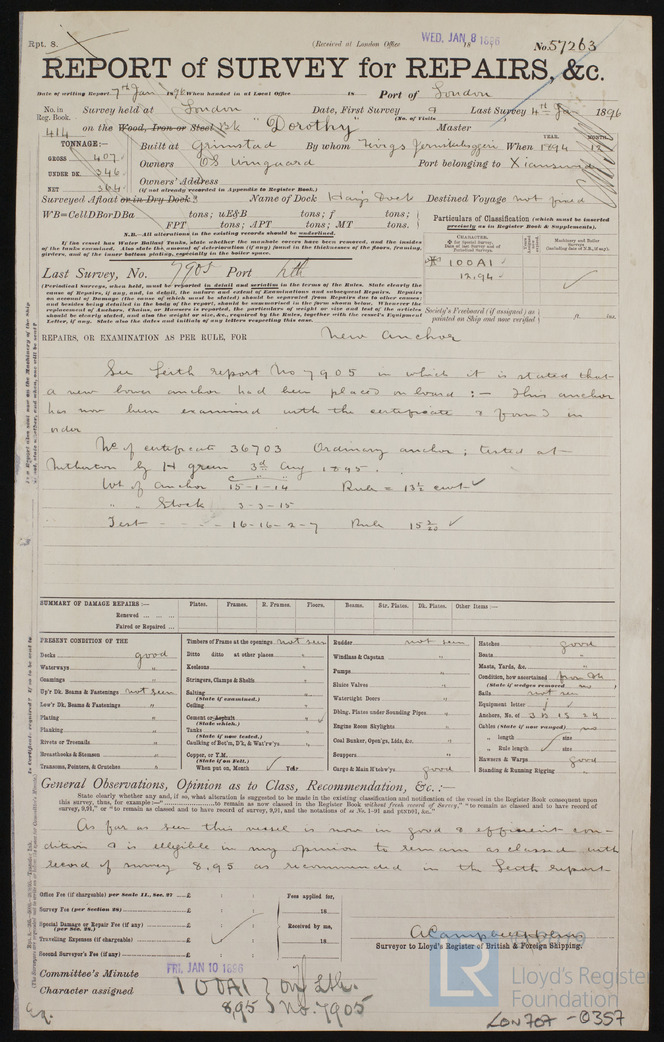 Rpt. 8.
(Received at London Office
WED. JAN 8 1896
18
No. 57263
REPORT of SURVEY for REPAIRS, &c.
Date of writing Report 7th Jan 1896 When handed in at Local Office 18 Port of London
No. in Reg. Book.
Survey held at London Date, First Survey Last Survey 4th Jan 1896
(No. of Visits
414 on the Wood, Iron or Steel Bk "Dorothy" Master
TONNAGE:—
GROSS 407
UNDER DK. 346
NET 364
YEAR. MONTH.
Built at Grimstad By whom When 1894 12
Owners Port belonging to
Owners' Address
(if not already recorded in Appendix to Register Book.)
Surveyed Afloat or in Dry Dock? Name of Dock Hay's Dock Destined Voyage not fixed
WB=CellDBorDBa tons; uE&B tons; f tons;
FPT tons; APT tons; MT tons.
N.B.—All alterations in the existing records should be underlined.
If the vessel has Water Ballast Tanks, state whether the manhole covers have been removed, and the insides
of the tanks examined. Also state the amount of deterioration (if any) found in the thicknesses of the floors, framing,
girders, and of the inner bottom plating, especially in the boiler space.
Particulars of Classification (which must be inserted
precisely as in Register Book & Supplements).
CHARACTER.
Machinery and Boiler Surveys
100A1
12.94
Last Survey, No. 7905 Port Lth
(Periodical Surveys, when held, must be reported in detail and seriatim in the terms of the Rules. State clearly the
cause of Repairs, if any, and, in detail, the nature and extent of Examinations and subsequent Repairs. Repairs
on account of Damage (the cause of which must be stated) should be separated from Repairs due to other causes;
and besides being detailed in the body of the report, should be summarised in the form shown below. Wherever the
replacement of Anchors, Chains, or Hawsers is reported, the particulars of weight or size and test of the articles
should be clearly stated, and also the weight or size, &c., required by the Rules, together with the vessel's Equipment
Letter, if any. State also the dates and initials of any letters respecting this case.
Society's Freeboard (if assigned) as
painted on Ship and now verified
ft. ins.
REPAIRS, OR EXAMINATION AS PER RULE, FOR New anchor
See Leith report No 7905 in which it is stated that
a new bower anchor had been placed on board:— This anchor
has now been examined with the certificate & found in
order
No. of certificate 36703 Ordinary anchor; tested at
Netherton by H Green 3rd Aug 1895.
Wt of anchor 15-1-14 Rule = 13½ cwt
" " Stock 3-3-15
Test - - - - 16-16-2-7 Rule 15 3/20
SUMMARY OF DAMAGE REPAIRS:— Plates. Frames. R. Frames. Floors. Beams. Str. Plates. Dk. Plates. Other Items:—
Renewed
Faired or Repaired
PRESENT CONDITION OF THE
Decks good
Waterways "
Coamings "
Up'r Dk. Beams & Fastenings not seen
Low'r Dk. Beams & Fastenings "
Plating "
Planking "
Rivets or Treenails "
Breasthooks & Stemson "
Transoms, Pointers, & Crutches "
Timbers of Frame at the openings not seen
Ditto ditto at other places "
Keelsons "
Stringers, Clamps & Shelfs "
Salting "
(State if examined.)
Ceiling "
Cement or Asphalt "
(State which.)
Tanks
(State if now tested.)
Caulking of Bot'm, D'k, & Wat'rw'ys "
Copper, or Y.M.
(State if on Felt.)
When put on, Month Year
Rudder not seen
Windlass & Capstan "
Pumps "
Sluice Valves "
Watertight Doors "
Dblng. Plates under Sounding Pipes "
Engine Room Skylights "
Coal Bunker, Open'gs, Lids, &c. "
Scuppers "
Cargo & Main H'tchw'ys good
Hatches good
Boats "
Masts, Yards, &c. "
Condition, how ascertained from dk
(State if wedges removed no)
Sails not seen
Equipment letter
Anchors, No. of 3B 1S 2K
Cables (State if now ranged) no
" length size
" Rule length size
Hawsers & Warps good
Standing & Running Rigging "
General Observations, Opinion as to Class, Recommendation, &c.:—
State clearly whether any, and, if so, what alteration is suggested to be made in the existing classification and notification of the vessel in the Register Book consequent upon
this survey, thus, for example:—" to remain as now classed in the Register Book without fresh record of Survey," "to remain as classed and to have record of
survey, 9,91," or "to remain as classed and to have record of survey, 9,91, and the notations of
As far as seen this vessel is now in good & efficient con-
dition & is elegible in my opinion to remain as classed with
record of survey 8.95 as recommended in the Leith report
Office Fee (if chargeable) per Scale 11., Sec. 27 £
Survey Fee (per Section 28) £
Special Damage or Repair Fee (if any) £
(per Sec. 28.)
Travelling Expenses (if chargeable) £
Second Surveyor's Fee (if any) £
Fees applied for,
18
Received by me,
18
Surveyor to Lloyd's Register of British & Foreign Shipping.
Committee's Minute FRI. JAN 10 1896
Character assigned 100A1 } on Lth.
8,95 } No. 7905
LR
Lloyd's Register
Foundation
LON707-0357